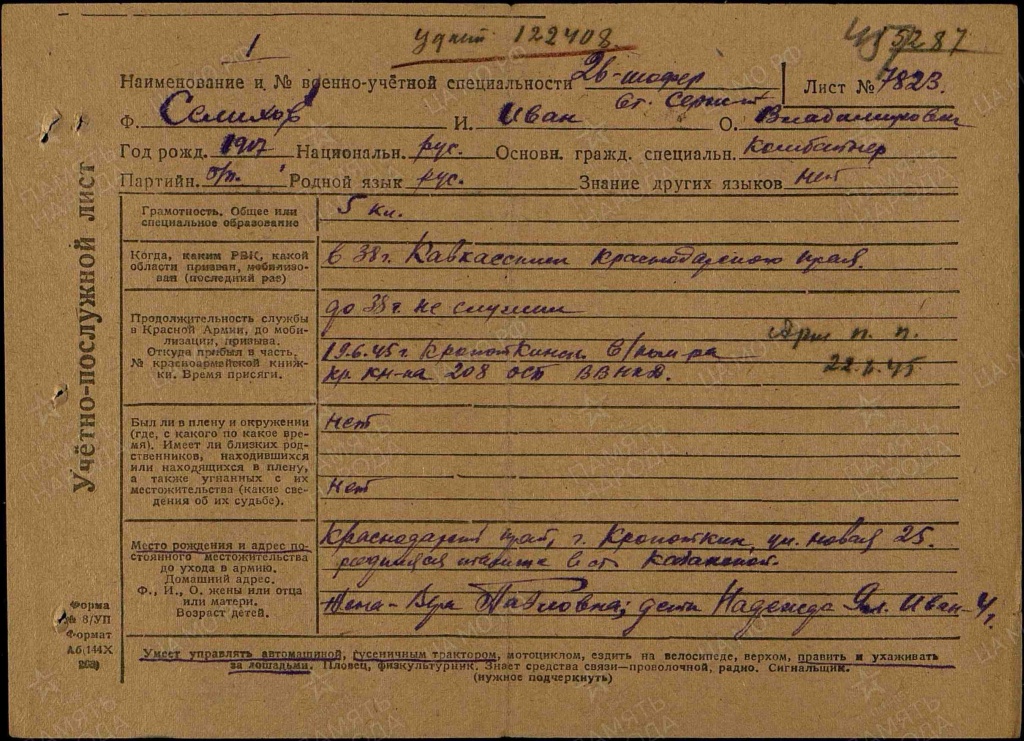 1
122408
45287
Наименование и № военно-учётной специальности 26-шофер Лист № 7823.
ст. сержант
Ф. Селихов И. Иван О.
Год рожд. 1907 Национальн. рус. Основн. гражд. специальн. Комбайнер
Партийн. б/п. Родной язык рус. Знание других языков нет
Учётно-послужной лист
Грамотность. Общее или
специальное образование
5 кл.
Когда, каким РВК, какой
области призван, мобилизо-
ван (последний раз)
в 38 г. Кавкасским Краснодарского края.
Продолжительность службы
в Красной Армии, до моби-
лизации, призыва.
Откуда прибыл в часть.
№ красноармейской книж-
ки. Время присяги.
до 38 г. не служил
19.6.45 г. Кропоткинск.
кр. кн-ка 208
п. п.
22.6.45
Был ли в плену и окружении
(где, с какого по какое вре-
мя). Имеет ли близких род-
ственников, находившихся
или находящихся в плену,
а также угнанных с их
местожительства (какие све-
дения об их судьбе).
нет
нет
Место рождения и адрес по-
стоянного местожительства
до ухода в армию.
Домашний адрес.
Ф., И., О. жены или отца
или матери.
Возраст детей.
Краснодарский край, г. Кропоткин, ул. Новая 25.
родился в ст. Казанской.
Жена - Вера Павловна; дети Надежда 9 л. Иван - 4 г.
Форма
№ 8/УП
Формат
А6(144Х
203)
Умеет управлять автомашиной, гусеничным трактором, мотоциклом, ездить на велосипеде, верхом, править и ухаживать
за лошадьми. Пловец, физкультурник. Знает средства связи—проволочной, радио. Сигнальщик.
(нужное подчеркнуть)